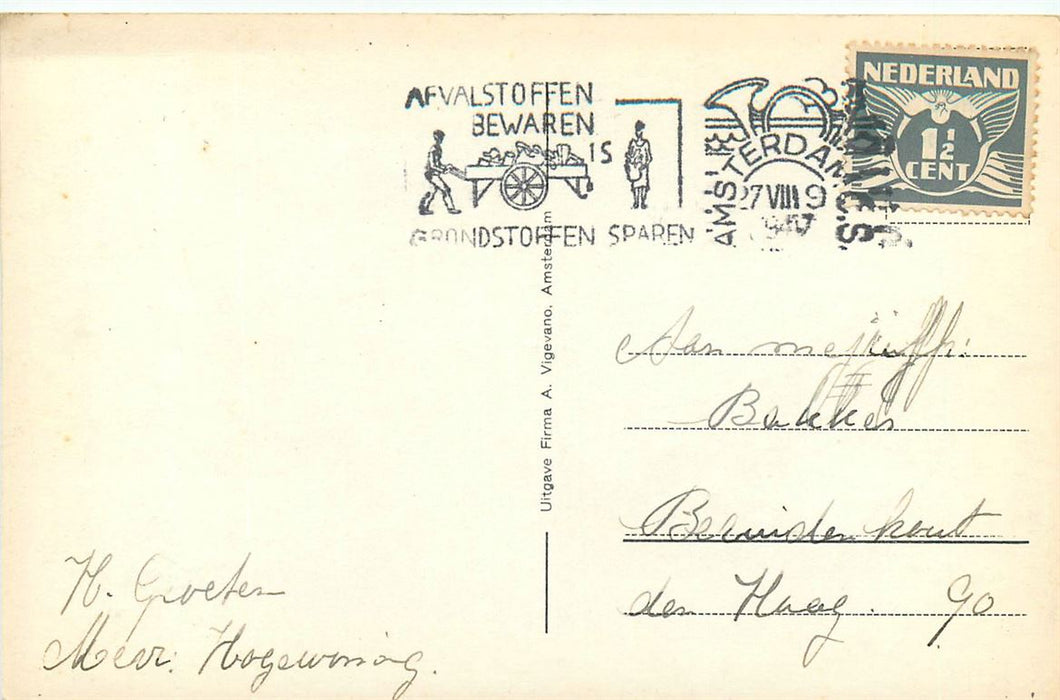 NEDERLAND
1½
CENT
AFVALSTOFFEN
BEWAREN
IS
GRONDSTOFFEN SPAREN
AMSTERDAM
27 VIII 9
Uitgave Firma A. Vigevano, Amsterdam
Aan mejuffr:
Bakker
Bezuidenhout
den Haag. 90
H. Groeten
Mevr. Hogewoning.